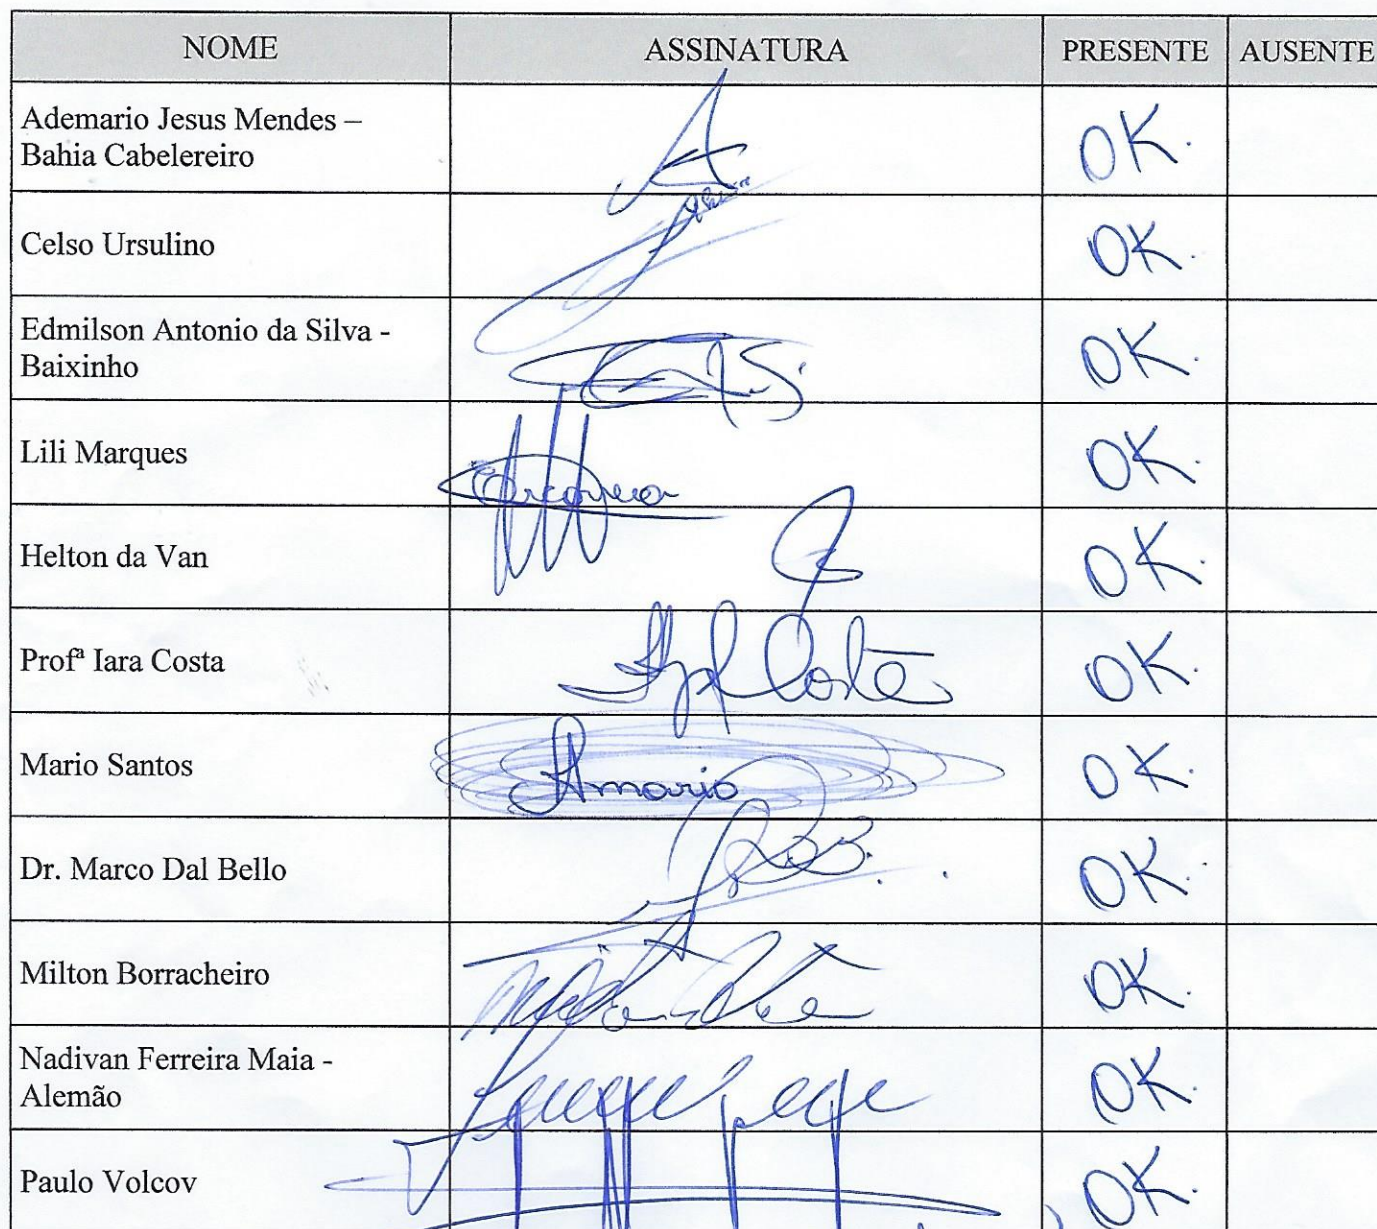 NOME ASSINATURA PRESENTE AUSENTE
Ademario Jesus Mendes – OK.
Bahia Cabelereiro
Celso Ursulino OK.
Edmilson Antonio da Silva - OK.
Baixinho
Lili Marques OK.
Helton da Van OK.
Profª Iara Costa Costa OK.
Mario Santos Amario OK.
Dr. Marco Dal Bello OK.
Milton Borracheiro OK.
Nadivan Ferreira Maia - OK.
Alemão
Paulo Volcov OK.